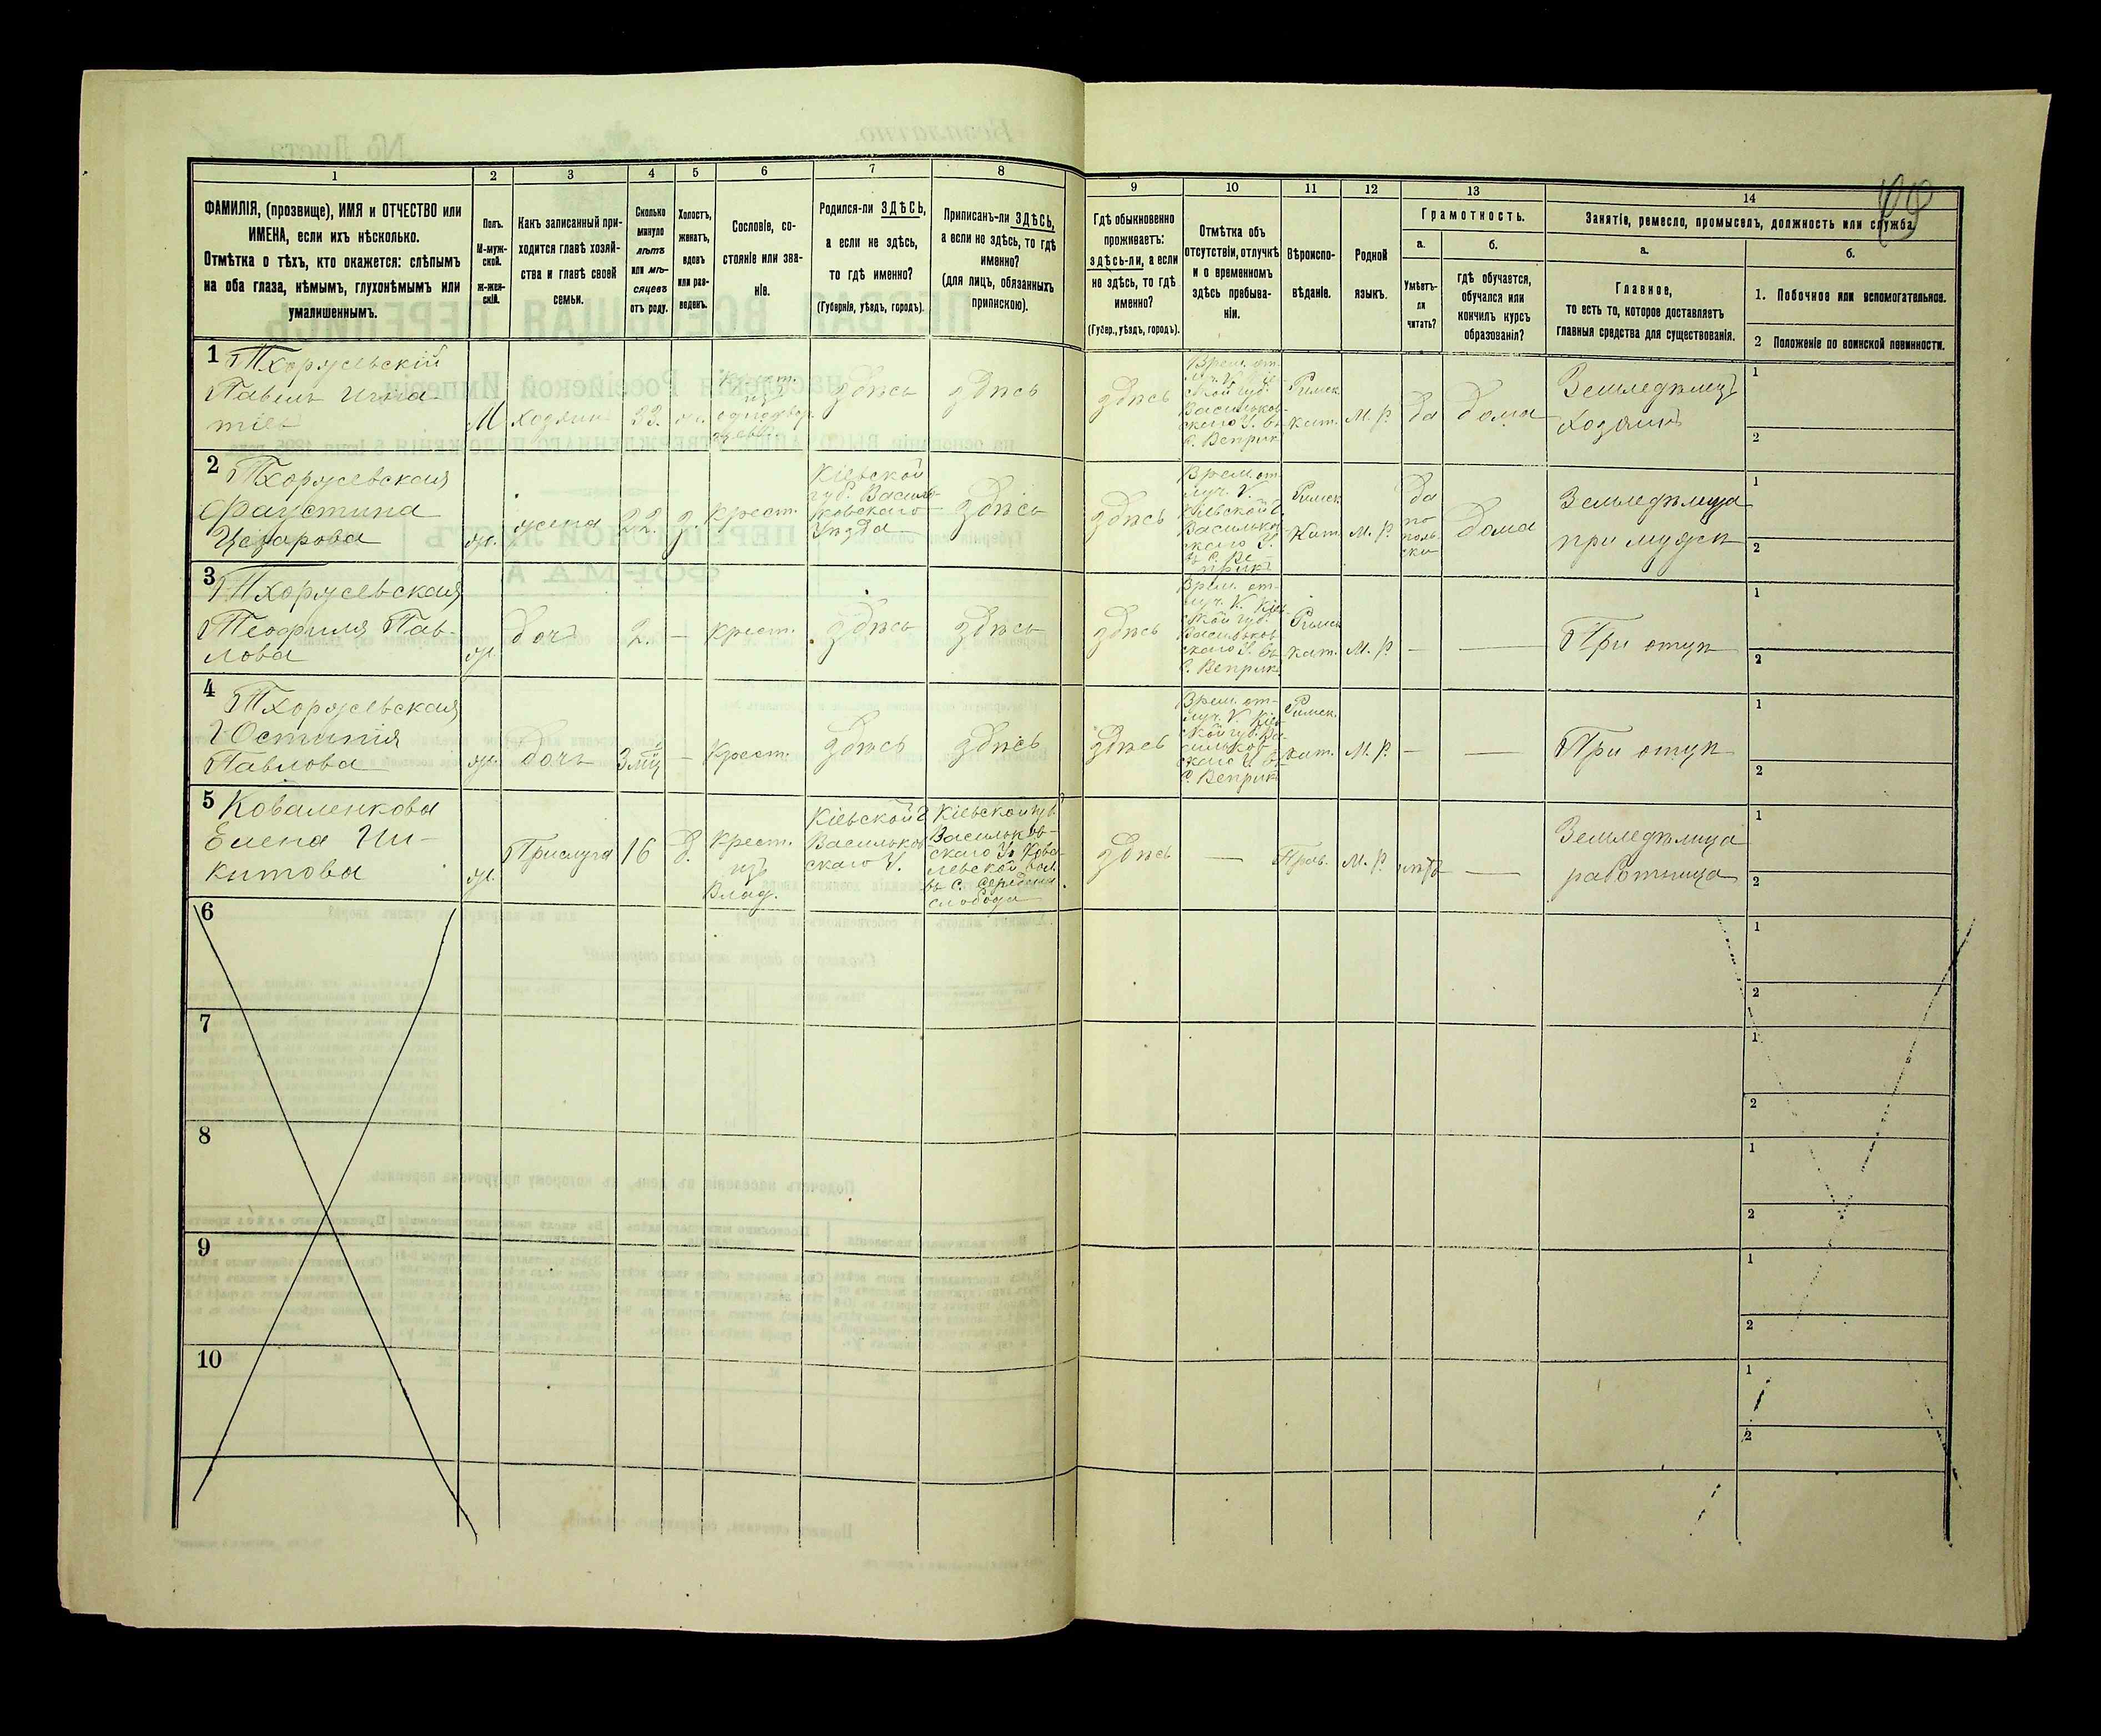 1
2
3
4
5
6
7
8
ФАМИЛІЯ, (прозвище), ИМЯ и ОТЧЕСТВО или
ИМЕНА, если ихъ нѣсколько.
Отмѣтка о тѣхъ, кто окажется: слѣпымъ
на оба глаза, нѣмымъ, глухонѣмымъ или
умалишеннымъ.
Полъ.
М-муж-
ской.
ж-жен-
скій.
Какъ записанный при-
ходится главѣ хозяй-
ства и главѣ своей
семьи.
Сколько
минуло
лѣтъ
или мѣ-
сяцевъ
отъ роду.
Холостъ,
женатъ,
вдовъ
или раз-
веденъ.
Сословіе, со-
стояніе или зва-
ніе.
Родился-ли ЗДѢСЬ,
а если не здѣсь,
то гдѣ именно?
(Губернія, уѣздъ, городъ).
Приписанъ-ли ЗДѢСЬ,
а если не здѣсь, то гдѣ
именно?
(для лицъ, обязанныхъ
припискою).
9
10
11
12
13
14
Гдѣ обыкновенно
проживаетъ:
здѣсь-ли, а если
не здѣсь, то гдѣ
именно?
(Губер., уѣздъ, городъ).
Отмѣтка объ
отсутствіи, отлучкѣ
и о временномъ
здѣсь пребыва-
ніи.
Вѣроиспо-
вѣданіе.
Родной
языкъ.
Грамотность.
а.
б.
Умѣетъ-
ли
читать?
гдѣ обучается,
обучался или
кончилъ курсъ
образованія?
Занятіе, ремесло, промыселъ, должность или служба.
а.
б.
Главное,
то есть то, которое доставляетъ
главныя средства для существованія.
1. Побочное или вспомогательное.
2 Положеніе по воинской повинности.
1 Тхоржевскій
Павелъ Игна-
тіев
М
хозяин
33.
Крест.
из
однодвор
цевъ
здѣсь
здѣсь
здѣсь
Врем. от
Васильков
скаго У. въ
с. Веприк
Римск.
кат.
М. Р.
да
дома
Земледѣлецъ
хозяинъ
1
2
2 Тхоржевская
Фаустина
Цезарова
ж.
жена
22.
з.
крест.
Кіевской
губ. Василь-
ковскаго
Уѣзда
здѣсь
здѣсь
Врем. от
луч. К.
Кіевской г.
Васильков
скаго У.
въ с. Ве-
прикъ
Римск.
Кат.
М. Р.
да
по
поль
ски
дома
Земледѣлица
при мужѣ
1
2
3 Тхоржевская
Теофиля Пав-
лова
ж.
дочь
2.
—
крест.
здѣсь
здѣсь
здѣсь
Врем. от-
луч. К. Кіев-
ской губ.
Васильков
скаго У. въ
с. Веприк
Римск
кат.
М. Р.
—
—
При отцѣ
1
2
4 Тхоржевская
Юстинія
Павлова
ж.
дочь
3 мц
—
Крест.
здѣсь
здѣсь
здѣсь
Врем. от-
луч. К. Кіев
ской губ. Ва-
сильков
скаго У. въ
с. Веприк
Римск.
кат.
М. Р.
—
—
При отцѣ
1
2
5 Коваленкова
Елена Ни-
китова
ж.
Прислуга
16
д.
Крест.
изъ
Влад.
Кіевской г.
Васильков
скаго У.
Кіевской губ
Васильков-
скаго У. Кова-
левской вол.
въ с. Середная
слобода
здѣсь
—
Прав.
М. Р.
нѣтъ
—
Земледѣлица
работница
1
2
6
1
2
7
1
2
8
1
2
9
1
2
10
1
2